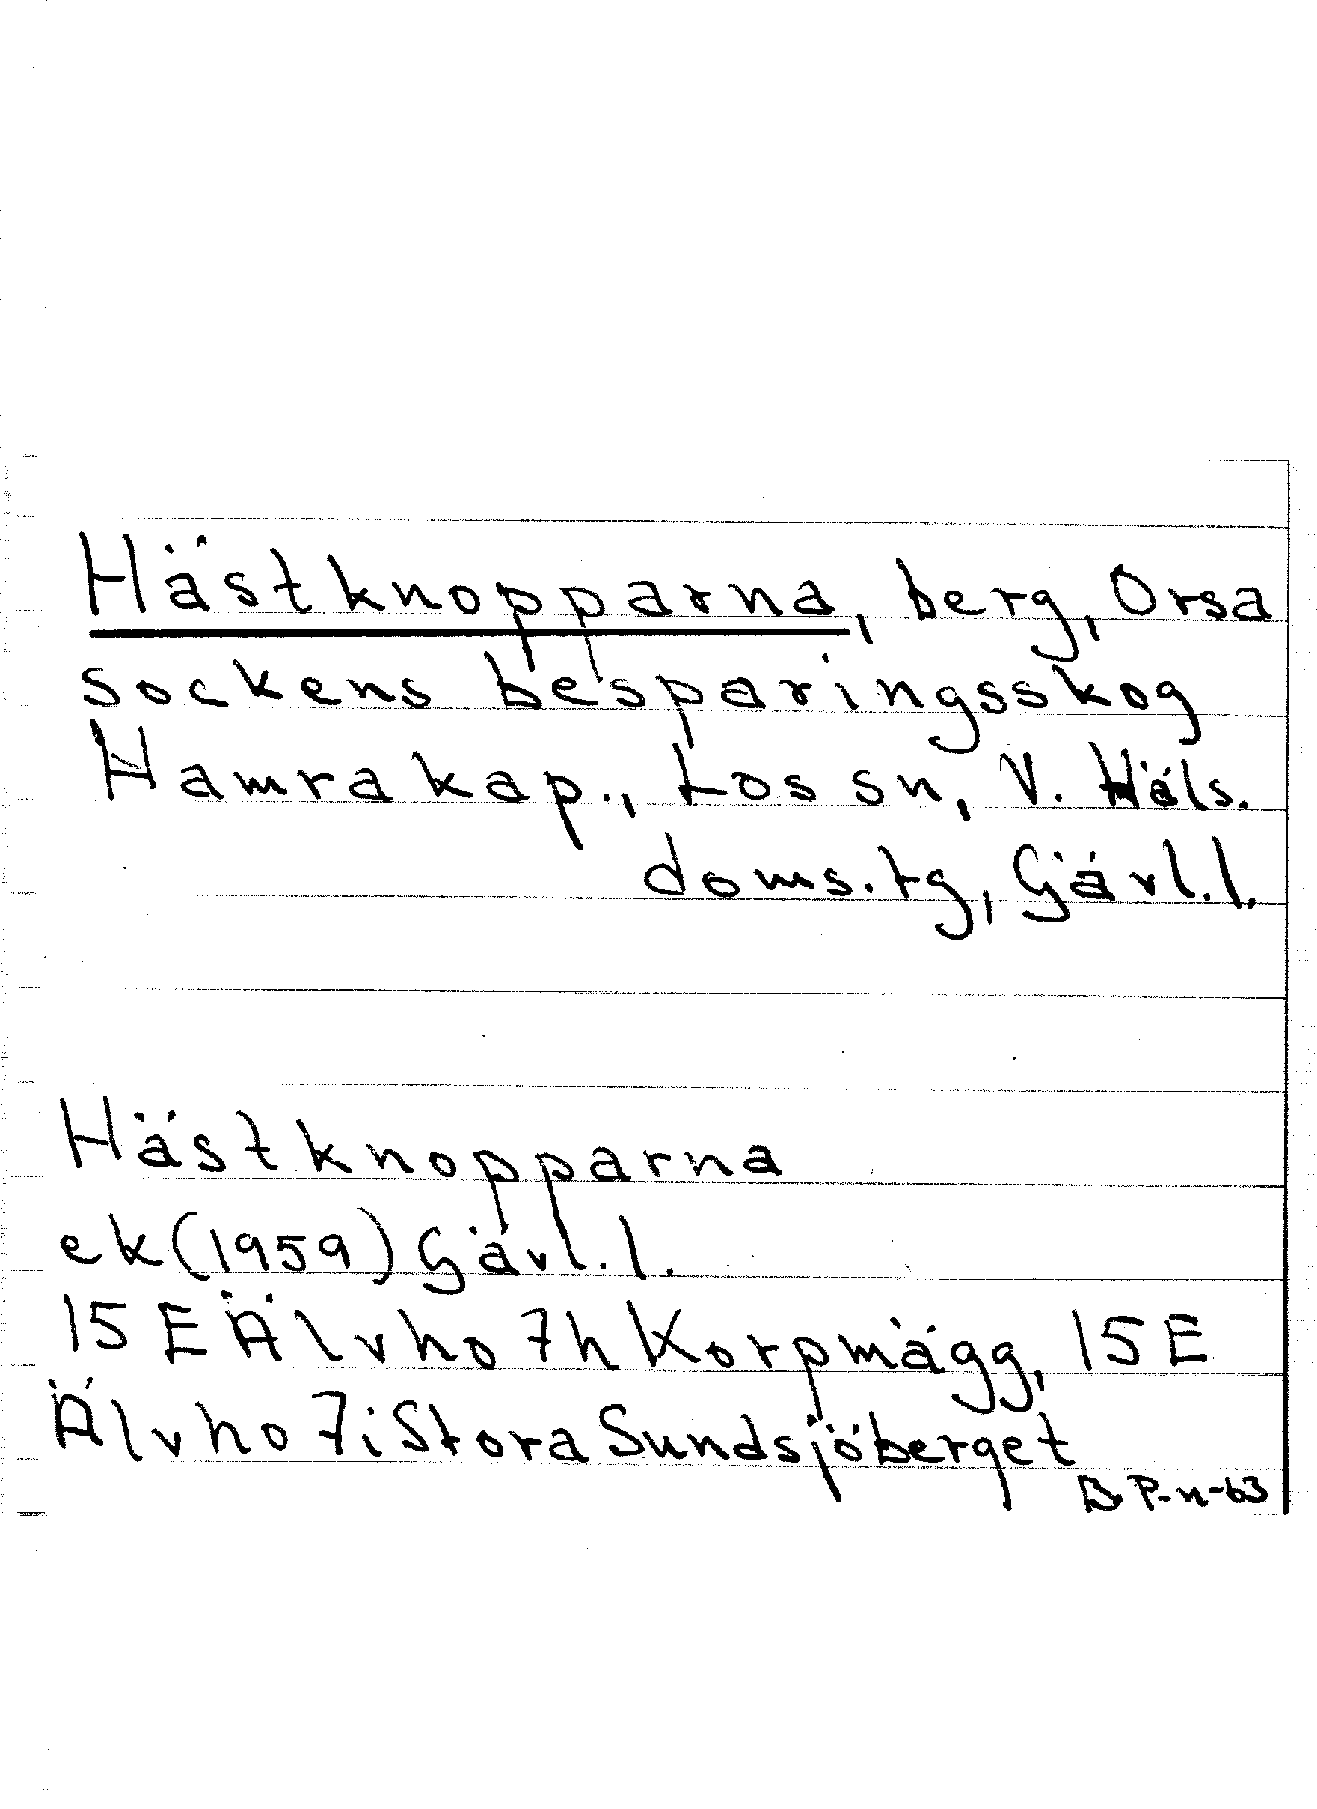 Hästknopparna, berg, Orsa
sockens besparingsskog
Hamra kap., Los sn, V. Häls.
doms. tg, Gävl. l.
Hästknopparna
ek (1959) Gävl. l.
15 E Älvho 7h Korpmägg, 15 E
Älvho 7i Stora Sundsjöberget